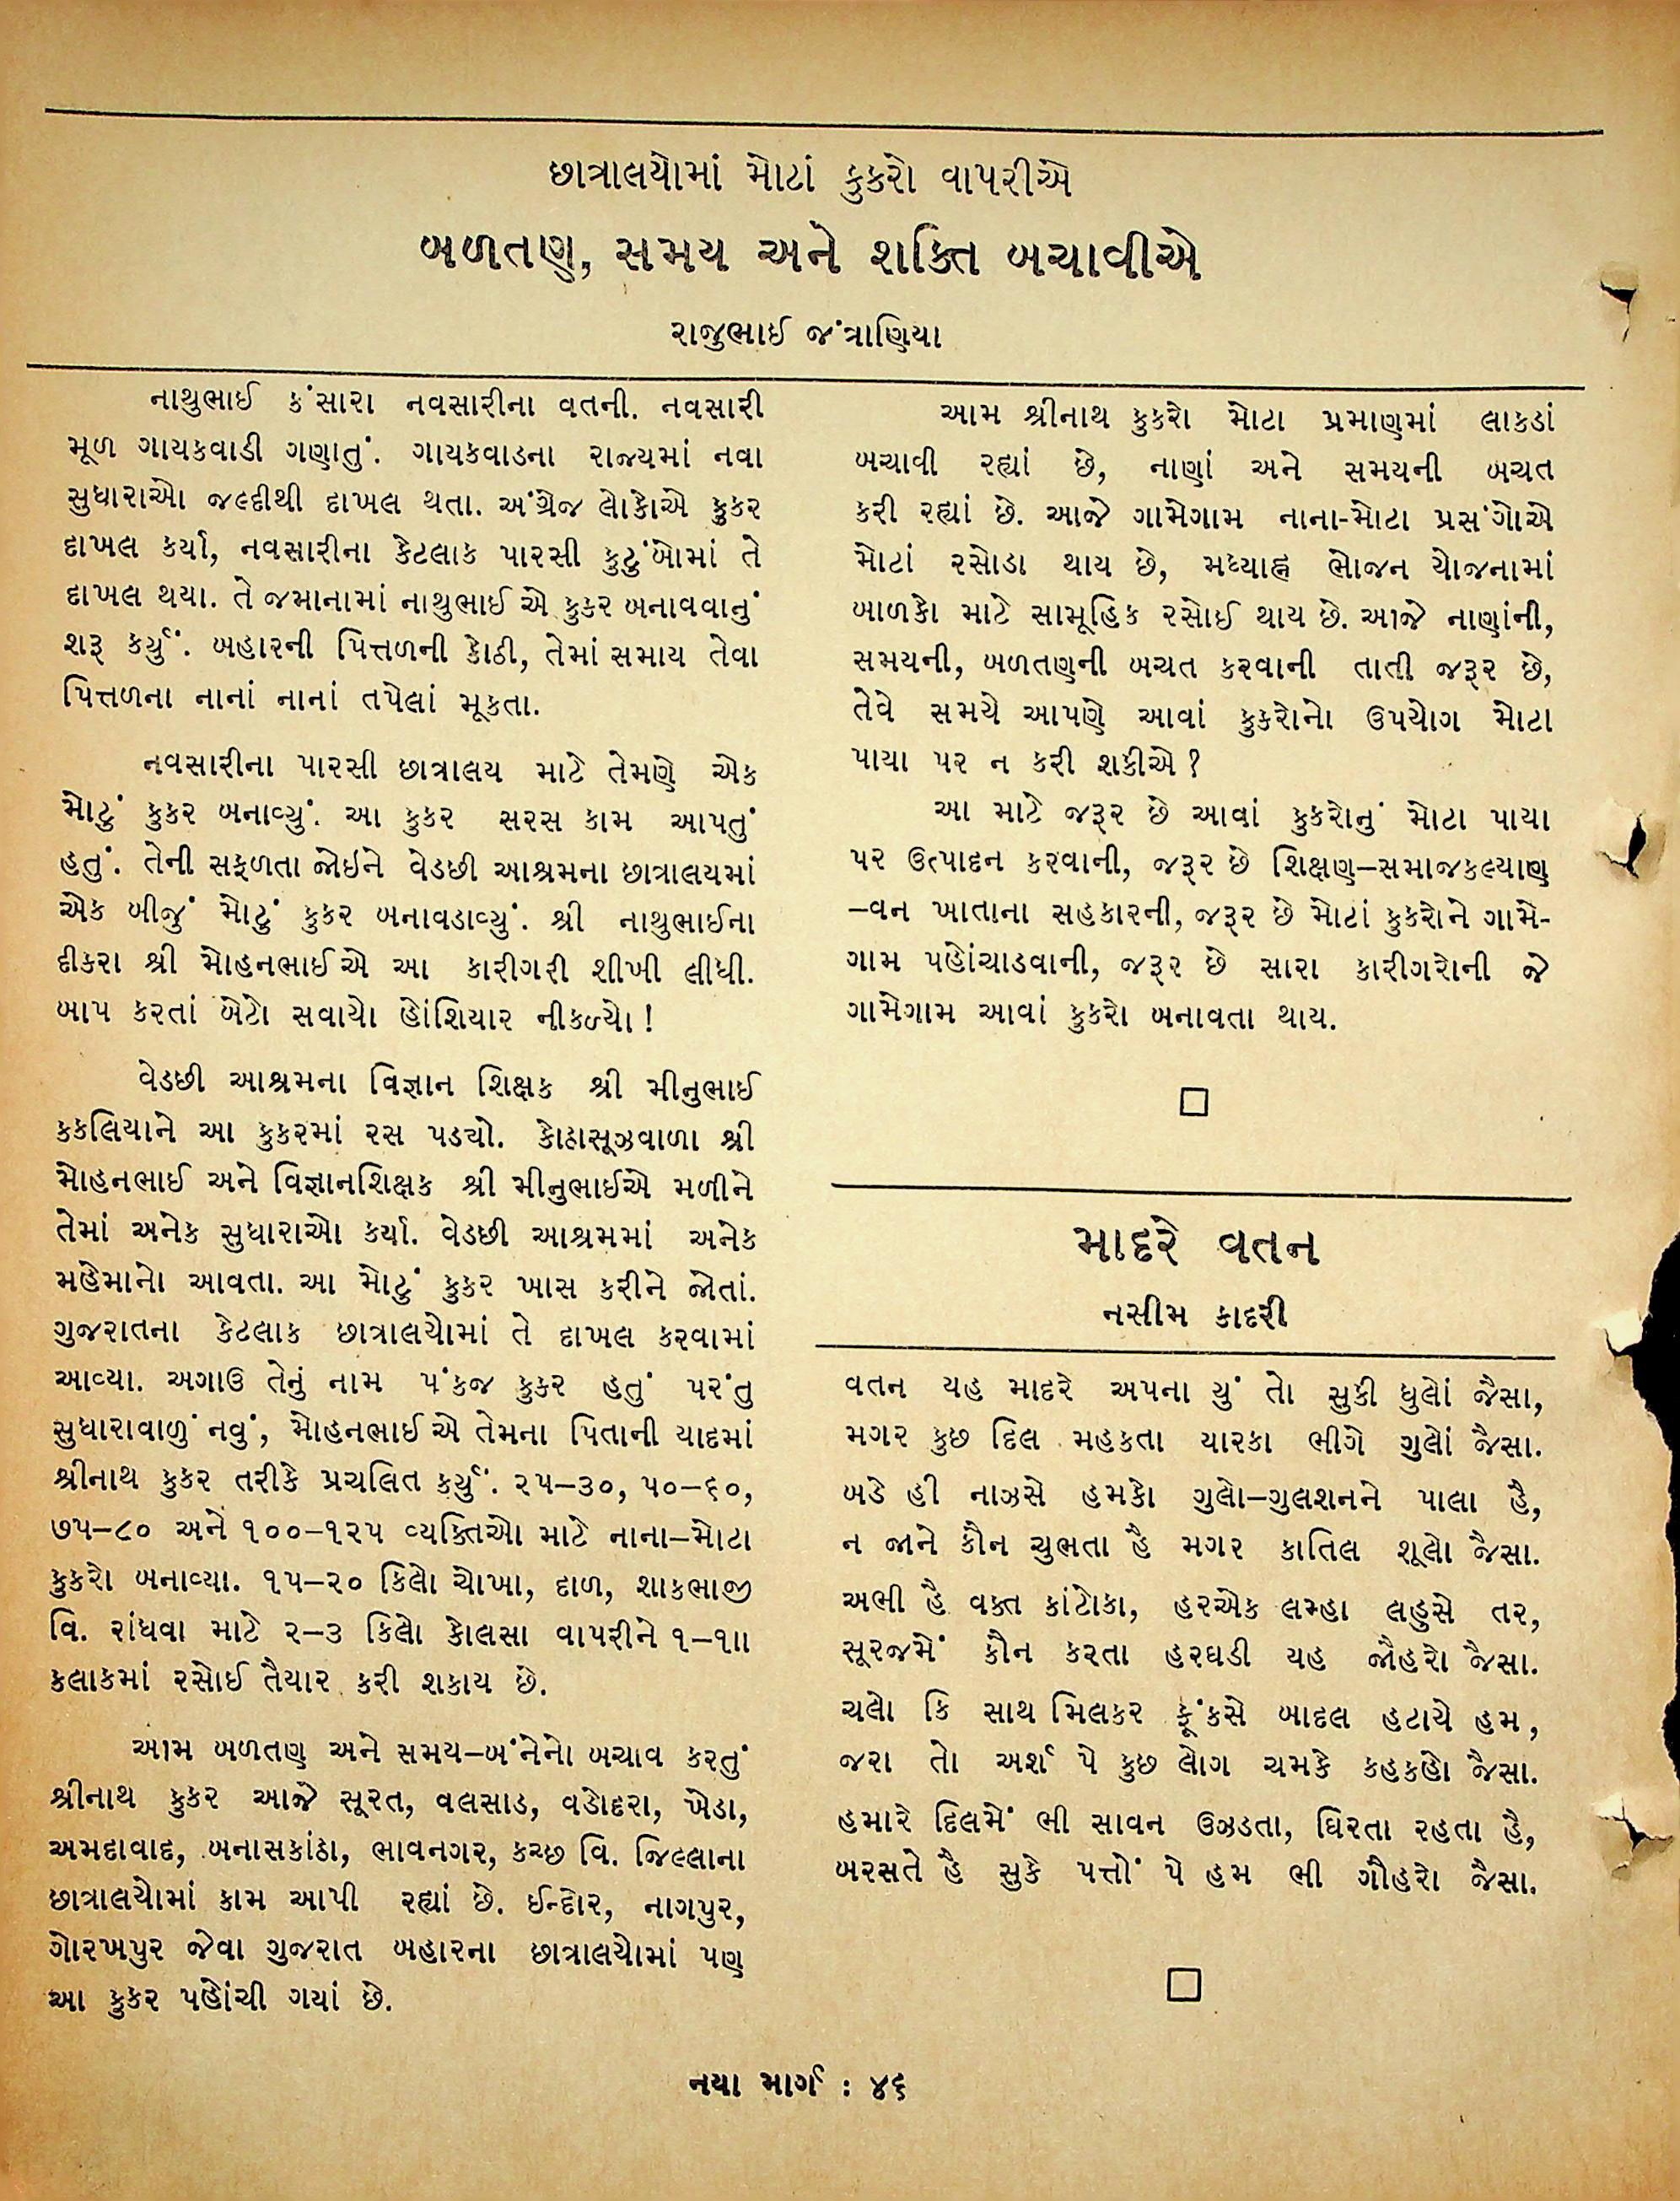 છાત્રાલયોમાં મોટાં કુકરો વાપરીએ
બળતણ, સમય અને શક્તિ બચાવીએ
રાજુભાઈ જંત્રાણિયા
નાથુભાઈ કંસારા નવસારીના વતની. નવસારી
મૂળ ગાયકવાડી ગણાતું. ગાયકવાડના રાજ્યમાં નવા
સુધારાઓ જલ્દીથી દાખલ થતા. અંગ્રેજ લોકોએ કુકર
દાખલ કર્યા, નવસારીના કેટલાક પારસી કુટુંબોમાં તે
દાખલ થયા. તે જમાનામાં નાથુભાઈ એ કુકર બનાવવાનું
શરૂ કર્યું. બહારની પિત્તળની કોઠી, તેમાં સમાય તેવા
પિત્તળના નાનાં નાનાં તપેલાં મૂકતા.
નવસારીના પારસી છાત્રાલય માટે તેમણે એક
મોટું કુકર બનાવ્યું. આ કુકર સરસ કામ આપતું
હતું. તેની સફળતા જોઈને વેડછી આશ્રમના છાત્રાલયમાં
એક બીજું મોટું કુકર બનાવડાવ્યું. શ્રી નાથુભાઈના
દીકરા શ્રી મોહનભાઈ એ આ કારીગરી શીખી લીધી.
બાપ કરતાં બેટો સવાયો હોંશિયાર નીકળ્યો!
વેડછી આશ્રમના વિજ્ઞાન શિક્ષક શ્રી મીનુભાઈ
કકલિયાને આ કુકરમાં રસ પડ્યો. કોઠાસૂઝવાળા શ્રી
મોહનભાઈ અને વિજ્ઞાનશિક્ષક શ્રી મીનુભાઈએ મળીને
તેમાં અનેક સુધારાઓ કર્યા. વેડછી આશ્રમમાં અનેક
મહેમાનો આવતા. આ મોટું કુકર ખાસ કરીને જોતાં.
ગુજરાતના કેટલાક છાત્રાલયોમાં તે દાખલ કરવામાં
આવ્યા. અગાઉ તેનું નામ પંકજ કુકર હતું પરંતુ
સુધારાવાળું નવું, મોહનભાઈ એ તેમના પિતાની યાદમાં
શ્રીનાથ કુકર તરીકે પ્રચલિત કર્યું. ૨૫–૩૦, ૫૦–૬૦,
૭૫–૮૦ અને ૧૦૦–૧૨૫ વ્યક્તિઓ માટે નાના–મોટા
કુકરો બનાવ્યા. ૧૫–૨૦ કિલો ચોખા, દાળ, શાકભાજી
વિ. રાંધવા માટે ૨–૩ કિલો કોલસા વાપરીને ૧–૧॥
કલાકમાં રસોઈ તૈયાર કરી શકાય છે.
આમ બળતણ અને સમય–બંનેનો બચાવ કરતું
શ્રીનાથ કુકર આજે સૂરત, વલસાડ, વડોદરા, ખેડા,
અમદાવાદ, બનાસકાંઠા, ભાવનગર, કચ્છ વિ. જિલ્લાના
છાત્રાલયોમાં કામ આપી રહ્યાં છે. ઈન્દોર, નાગપુર,
ગોરખપુર જેવા ગુજરાત બહારના છાત્રાલયોમાં પણ
આ કુકર પહોંચી ગયાં છે.
આમ શ્રીનાથ કુકરો મોટા પ્રમાણમાં લાકડાં
બચાવી રહ્યાં છે, નાણાં અને સમયની બચત
કરી રહ્યાં છે. આજે ગામેગામ નાના-મોટા પ્રસંગોએ
મોટાં રસોડા થાય છે, મધ્યાહ્ન ભોજન યોજનામાં
બાળકો માટે સામૂહિક રસોઈ થાય છે. આજે નાણાંની,
સમયની, બળતણની બચત કરવાની તાતી જરૂર છે,
તેવે સમયે આપણે આવાં કુકરોનો ઉપયોગ મોટા
પાયા પર ન કરી શકીએ?
આ માટે જરૂર છે આવાં કુકરોનું મોટા પાયા
પર ઉત્પાદન કરવાની, જરૂર છે શિક્ષણ–સમાજકલ્યાણ
–વન ખાતાના સહકારની, જરૂર છે મોટાં કુકરોને ગામે-
ગામ પહોંચાડવાની, જરૂર છે સારા કારીગરોની જે
ગામેગામ આવાં કુકરો બનાવતા થાય.
માદરે વતન
નસીમ કાદરી
વતન યહ માદરે અપના યું તો સુકી ધુલોં જૈસા,
મગર કુછ દિલ મહકતા યારકા ભીગે ગુલોં જૈસા.
બડે હી નાઝસે હમકો ગુલો–ગુલશનને પાલા હૈ,
ન જાને કૌન ચુભતા હૈ મગર કાતિલ શૂલો જૈસા.
અભી હૈ વક્ત કાંટોકા, હરએક લમ્હા લહુસે તર,
સૂરજમેં કૌન કરતા હરઘડી યહ જૌહરો જૈસા.
ચલો કિ સાથ મિલકર ફૂંકસે બાદલ હટાયે હમ,
જરા તો અર્શ પે કુછ લોગ ચમકે કહકહો જૈસા.
હમારે દિલમેં ભી સાવન ઉઝડતા, ઘિરતા રહતા હૈ,
બરસતે હૈ સુકે પત્તોં પે હમ ભી ગૌહરો જૈસા.
નયા માર્ગ : ૪૬